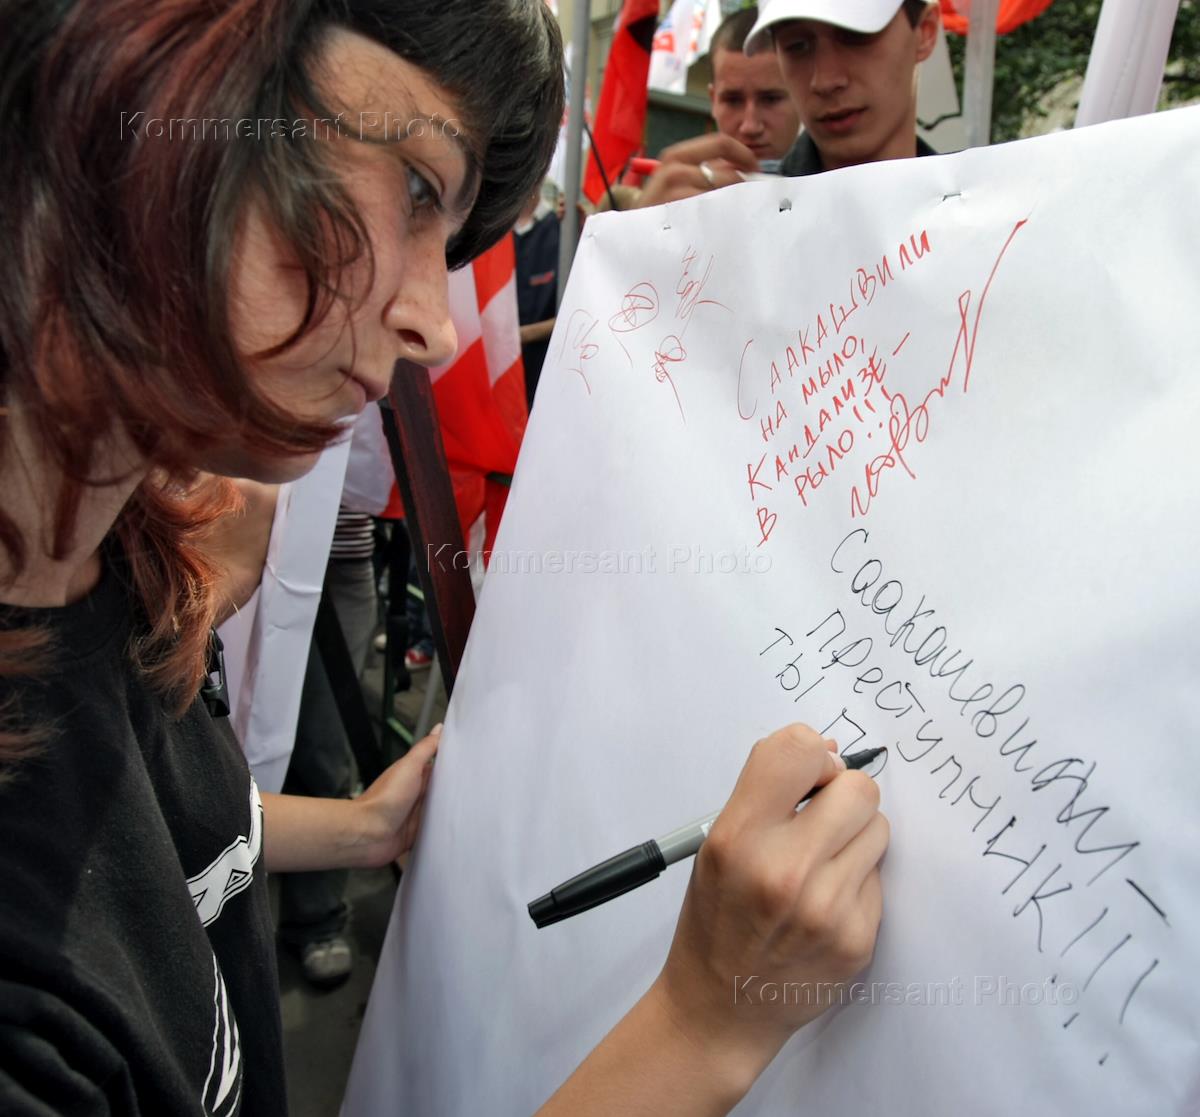 Kommersant Photo
СААКАШВИЛИ
НА МЫЛО,
КАНДАЛИЗЕ –
В РЫЛО!!!
Саакашвили –
преступник!!!
Ты по
Kommersant Photo
Kommersant Photo